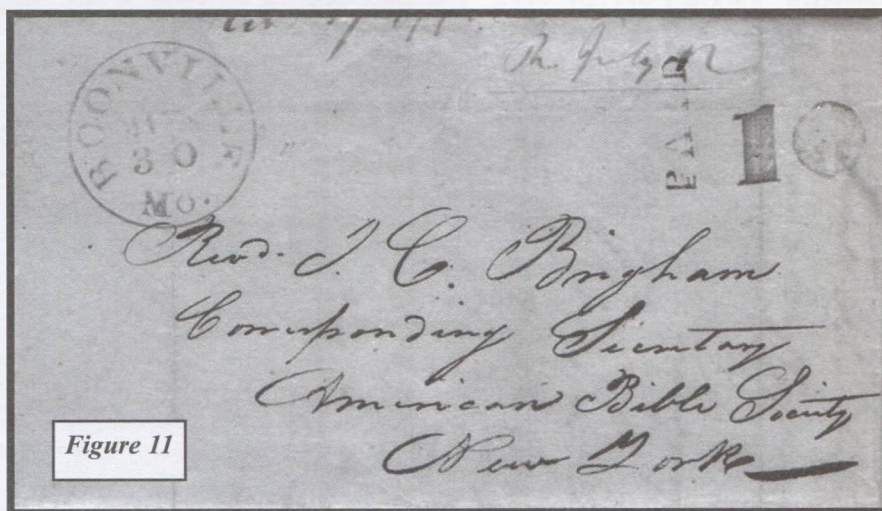 July 12
BOONVILLE
30
MO.
PAID
1
Revd. J. C. Brigham
Corresponding Secretary
American Bible Society
New York
Figure 11